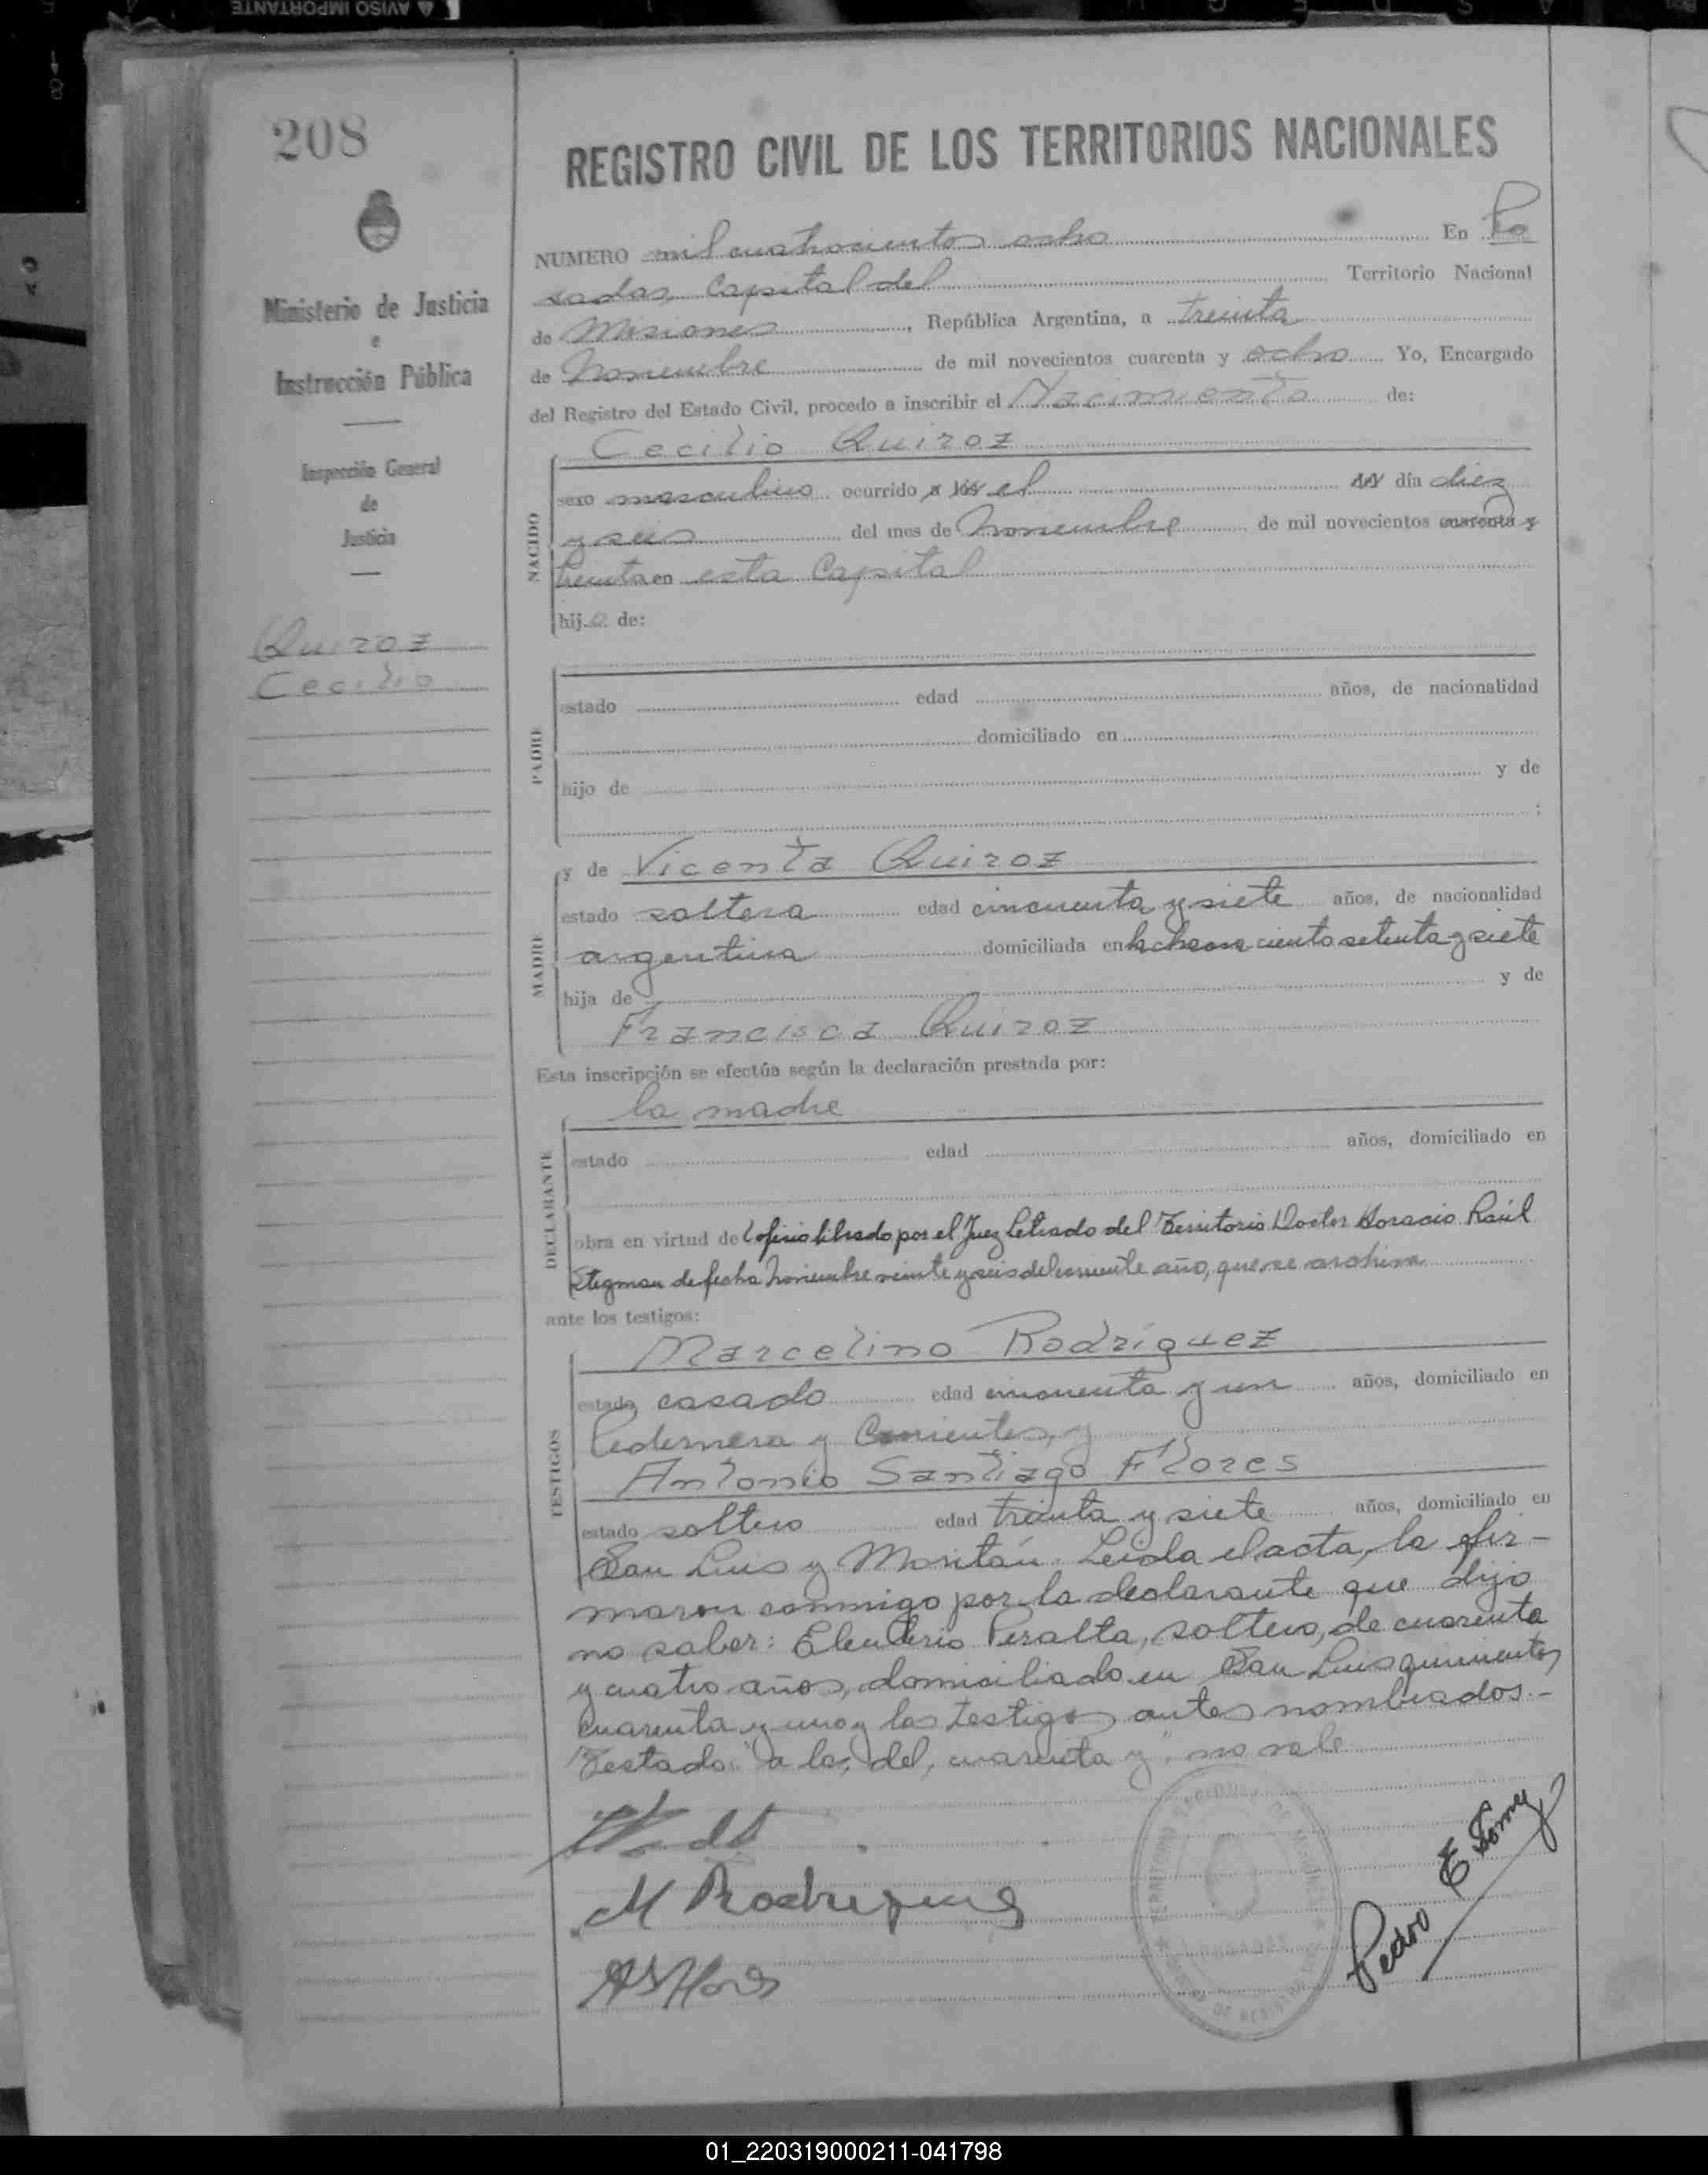 208
REGISTRO CIVIL DE LOS TERRITORIOS NACIONALES
Ministerio de Justicia
e
Instrucción Pública
Inspección General
de
Justicia
Quiroz
Cecilio
NUMERO mil cuatrocientos ocho En Po
sadas, Capital del Territorio Nacional
de Misiones, República Argentina, a treinta
de Noviembre de mil novecientos cuarenta y ocho Yo, Encargado
del Registro del Estado Civil, procedo a inscribir el Nacimiento de:
Cecilio Quiroz
NACIDO
sexo masculino ocurrido a las el del día diez
y seis del mes de Noviembre de mil novecientos cuarenta y
treinta en esta Capital
hijo de:
PADRE
estado edad años, de nacionalidad
domiciliado en
hijo de y de
;
MADRE
y de Vicenta Quiroz
estado soltera edad cincuenta y siete años, de nacionalidad
argentina domiciliada en la chacra ciento setenta y siete
hija de y de
Francisca Quiroz
Esta inscripción se efectúa según la declaración prestada por:
DECLARANTE
la madre
estado edad años, domiciliado en
obra en virtud del oficio librado por el Juez Letrado del Territorio Doctor Horacio Raúl
Stegman de fecha Noviembre veinte y seis del corriente año, que se archiva
ante los testigos:
TESTIGOS
Marcelino Rodríguez
estado casado edad cincuenta y un años, domiciliado en
Pedernera y Corrientes, y
Antonio Santiago Flores
estado soltero edad treinta y siete años, domiciliado en
San Luis y Moritán. Leida el acta, la fir-
maron conmigo por la declarante que dijo
no saber: Eleuterio Peralta, soltero, de cuarenta
y cuatro años, domiciliado en San Luis quinientos
cuarenta y uno y los testigos antes nombrados.-
Testado: "a las, del, cuarenta y": no vale
M Rodriguez
AS Flores
Pedro E
01_220319000211-041798